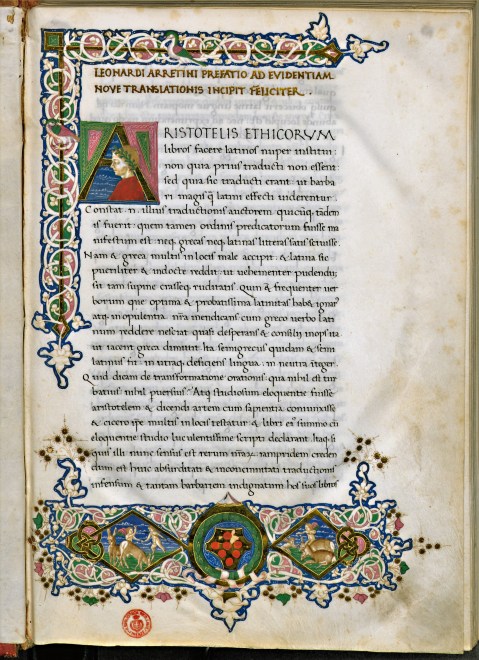 LEONARDI ARRETINI PREFATIO AD EVIDENTIAM
NOVE TRANSLATIONIS INCIPIT FELICITER .
ARISTOTELIS ETHICORVM
libros facere latinos nuper institui:
non quia prius traducti non essent
sed quia sic traducti erant ut barba
ri magis q̄ latini effecti uiderentur.
Constat .n. illius traductionis auctorem quicūq; tādem
is fuerit quem tamen ordinis predicatorum fuisse ma
nifestum est neq; grecas neq; latinas litteras satis sciuisse.
Nam & greca multis in locis male accipit & latina sic
pueriliter & indocte reddit ut uehementer pudendū
sit tam supine crasseq; ruditatis Quin & frequenter uer
borum que optima & probatissima latinitas habet ignarꝰ
atq; in opulentia nr̄a mendicans cum greco uerbo lati
num reddere nesciat quasi desperans & consilij inops ita
ut iacent greca dimittit Ita semigrecus quidam & semi
latinus fit in utraq; deficiens lingua in neutra integer
Quid dicam de transformatione orationis qua nihil est tur
batius nihil peruersius Atq; studiosum eloquentie fuisse
aristotelem & dicendi artem cum sapientia coniunxisse
& cicero ip̄e multis in locis testatur & libri eiꝰ summo cū
eloquentie studio luculentissime scripti declarant Itaq; si
quis illi nunc sensus est rerum nr̄aꝝ iampridem creden
dum est huic absurditati & inconcinnitati traductionis
infensum & tantam barbariem indignatum hos suos libros